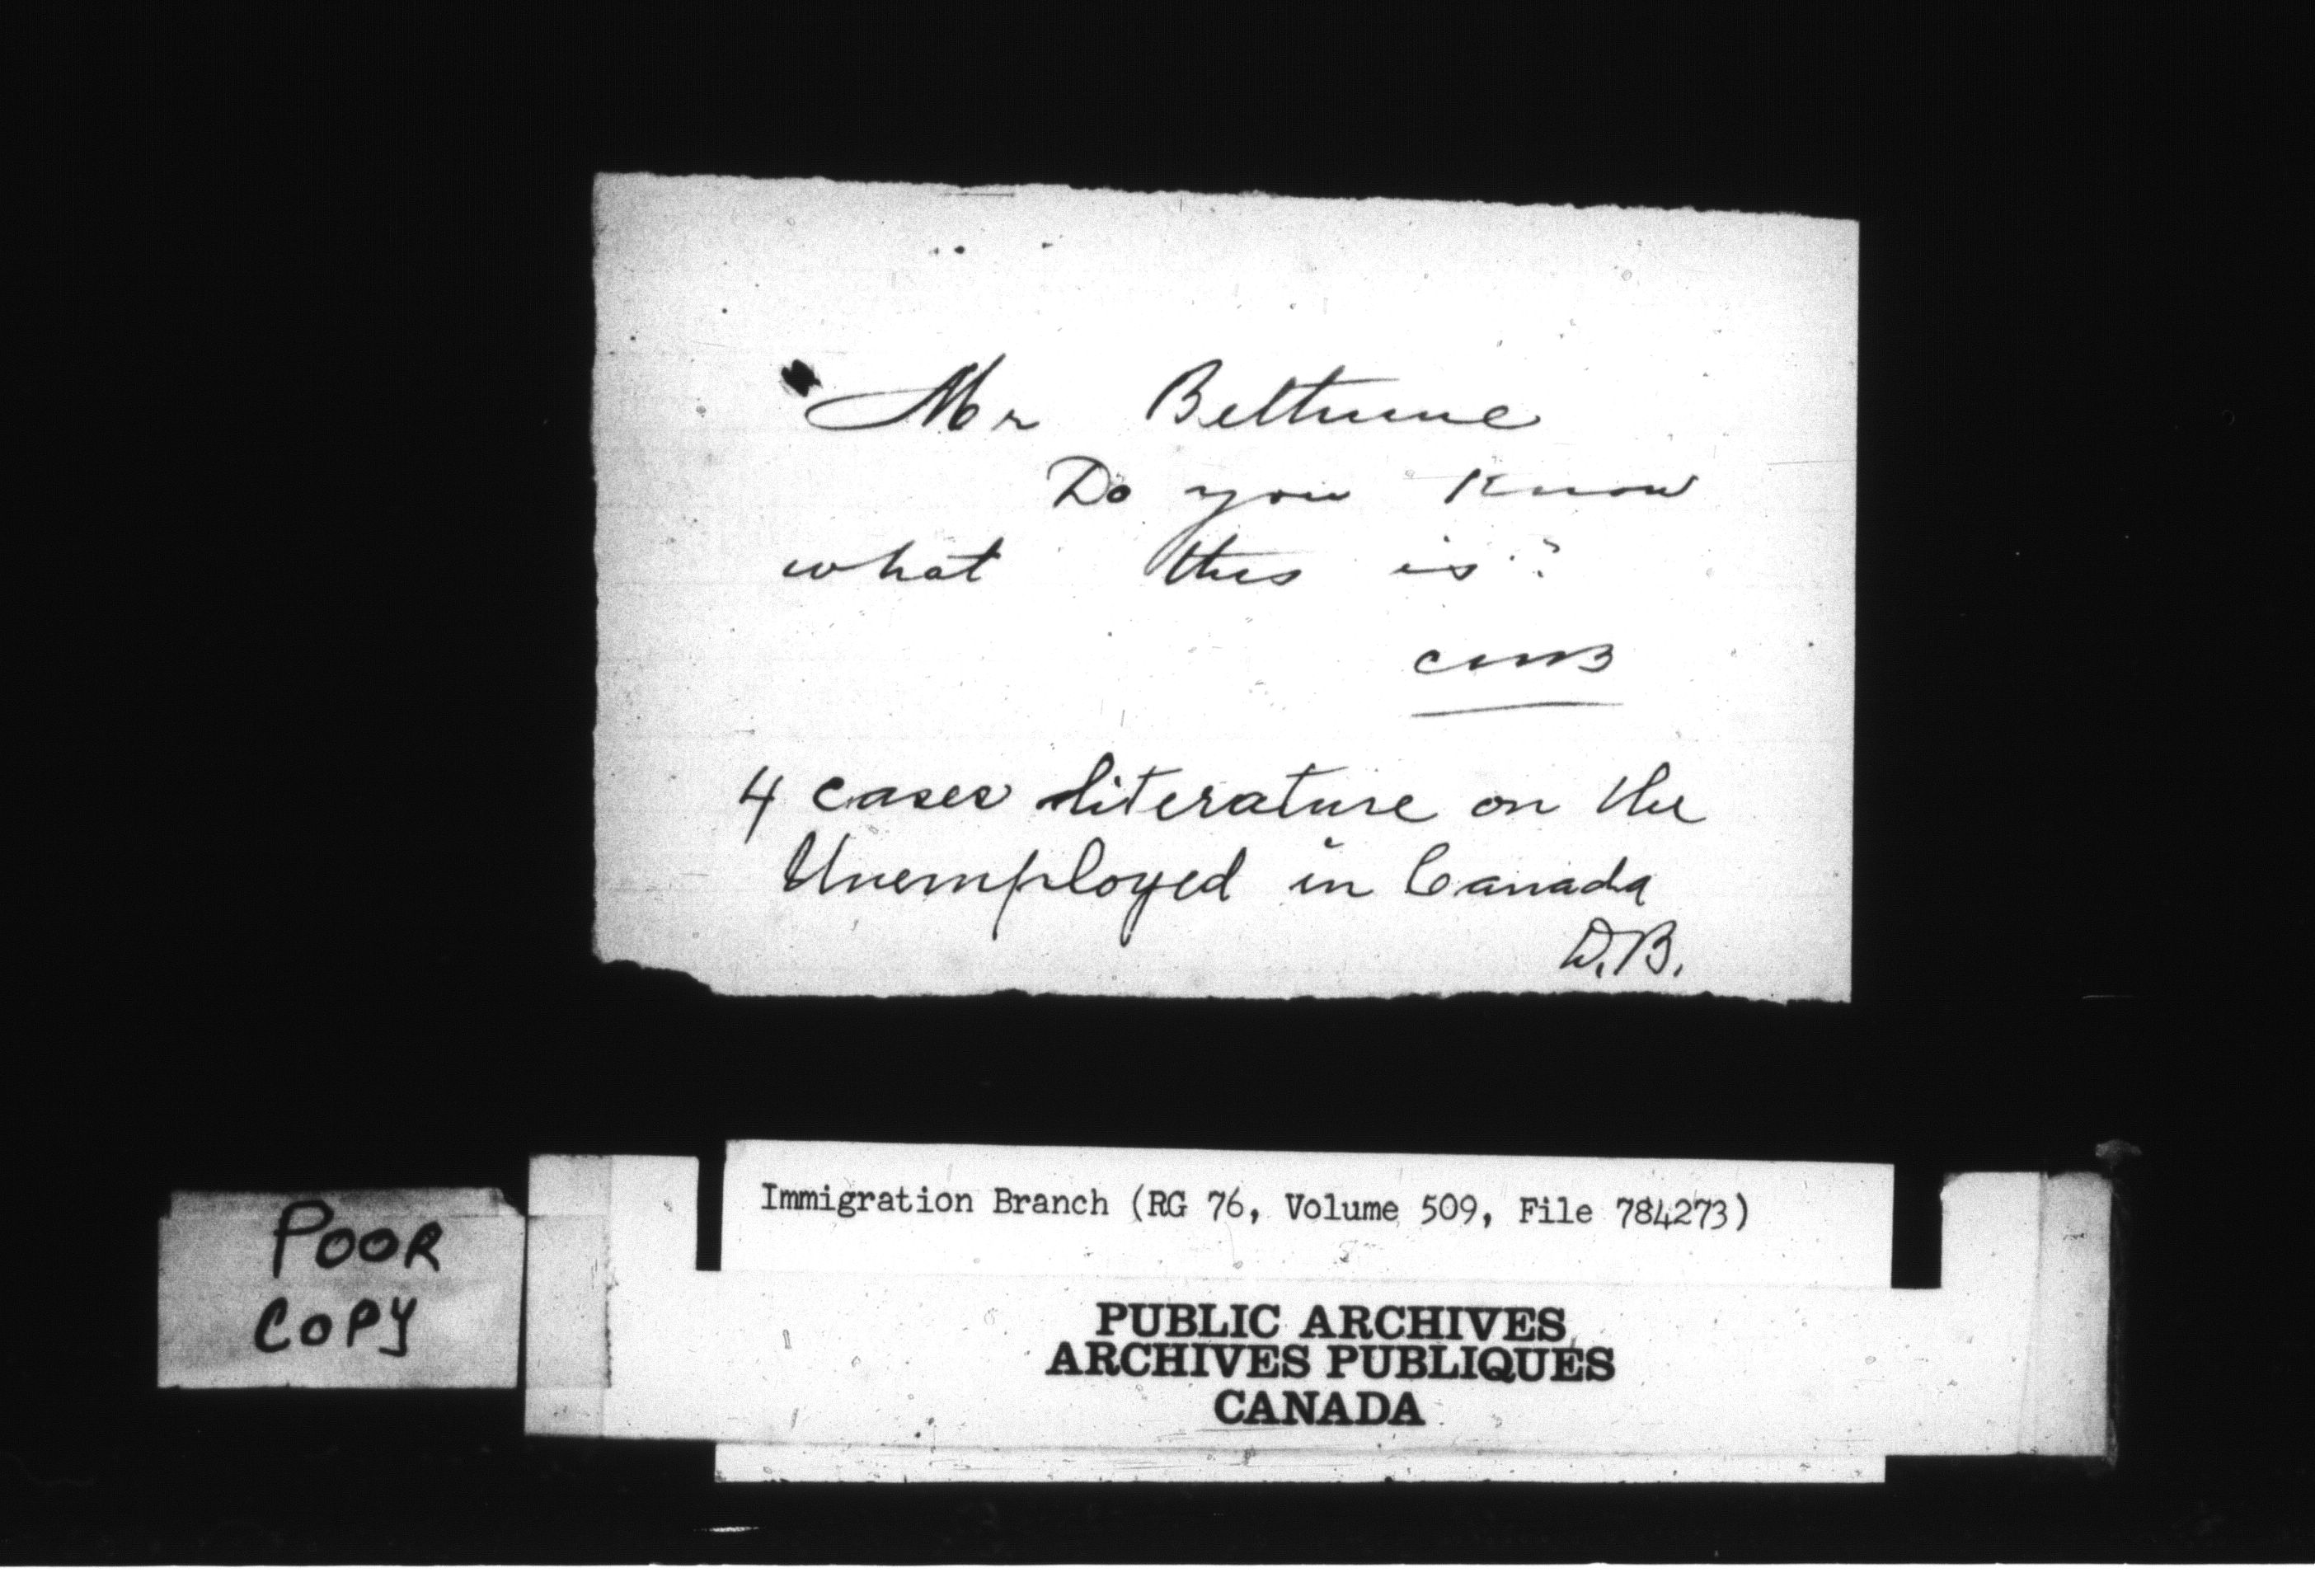 Mr Bethune
Do you know
what this is?
4 cases literature on the
Unemployed in Canada
D.B.
POOR
COPY
Immigration Branch (RG 76, Volume 509, File 784273)
PUBLIC ARCHIVES
ARCHIVES PUBLIQUES
CANADA